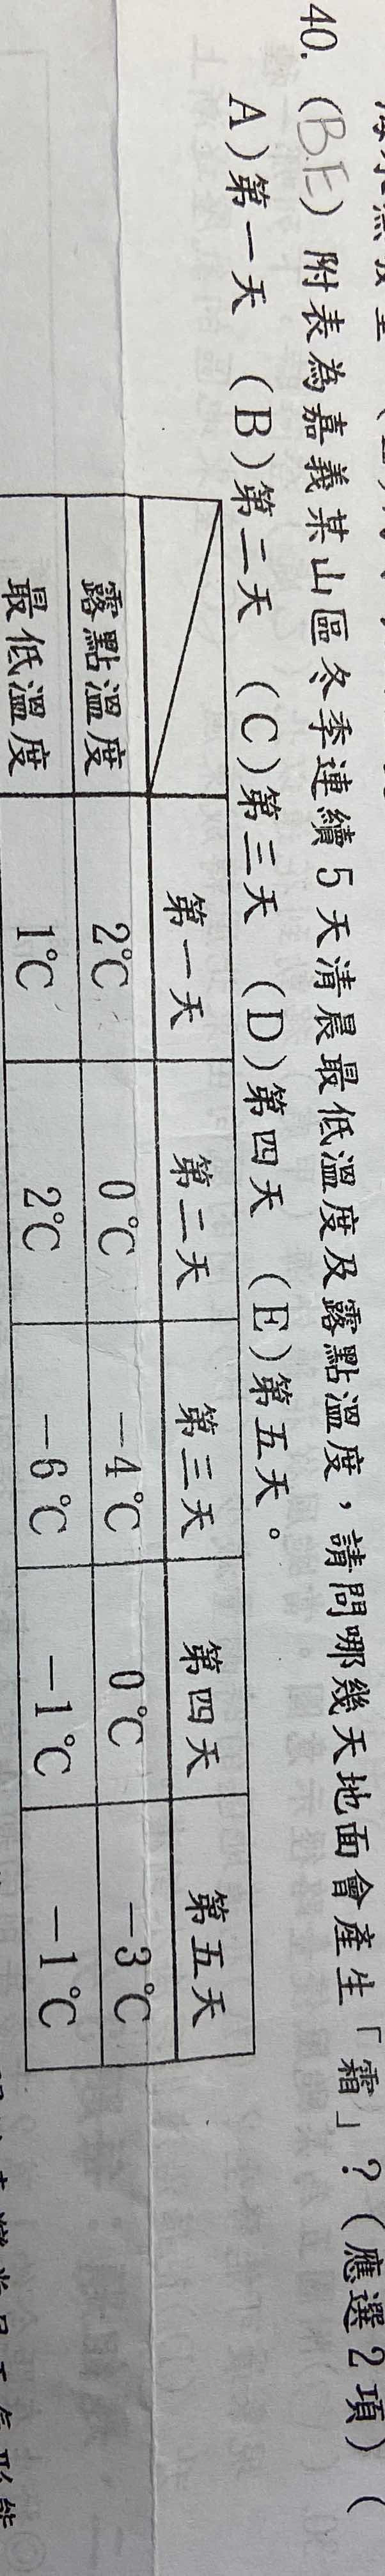 40. (B.E) 附表為嘉義某山區冬季連續5天清晨最低溫度及露點溫度，請問哪幾天地面會產生「霜」？（應選2項）（
A)第一天 (B)第二天 (C)第三天 (D)第四天 (E)第五天。
第一天 第二天 第三天 第四天 第五天
露點溫度 2℃ 0℃ －4℃ 0℃ －3℃
最低溫度 1℃ 2℃ －6℃ －1℃ －1℃